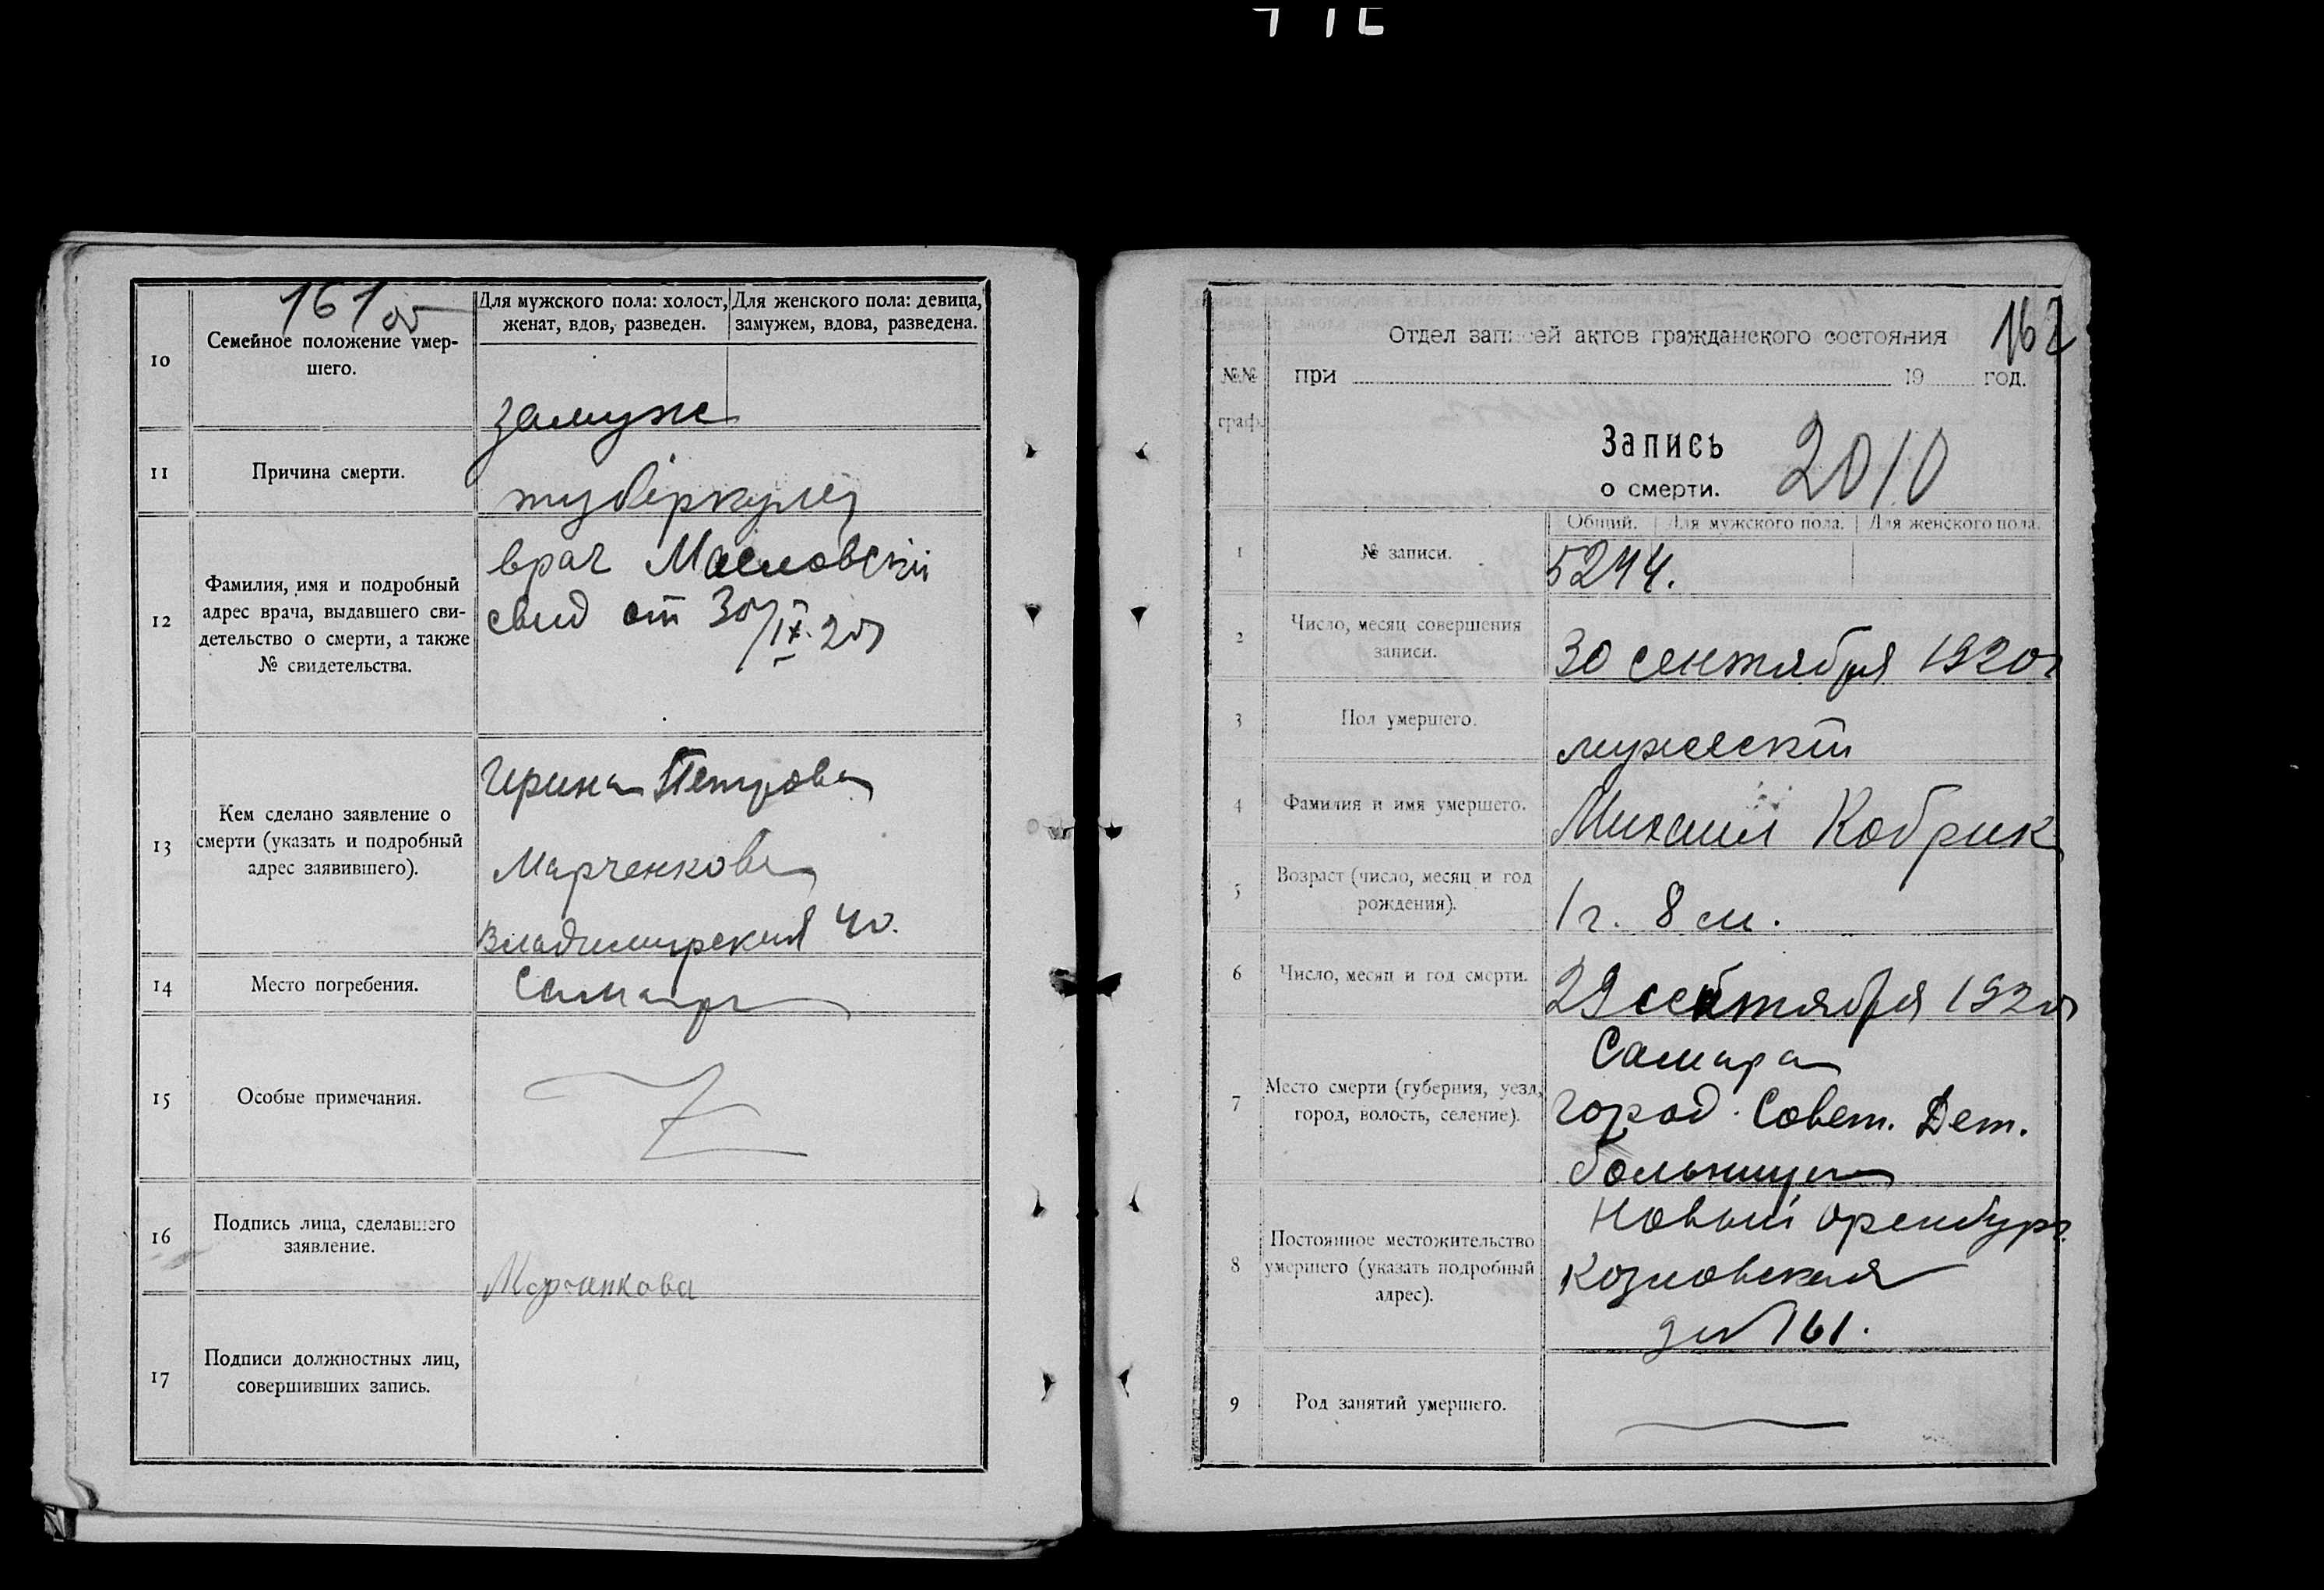 161 об
10
Семейное положение умер-
шего.
Для мужского пола: холост,
женат, вдов, разведен.
Для женского пола: девица,
замужем, вдова, разведена.
замуж
11
Причина смерти.
туберкулез
12
Фамилия, имя и подробный
адрес врача, выдавшего сви-
детельство о смерти, а также
№ свидетельства.
врач Масловский
свид от 30/IX.20
13
Кем сделано заявление о
смерти (указать и подробный
адрес заявившего).
Ирина Петрова
Марченкова
Владимирская 40.
14
Место погребения.
Самара
15
Особые примечания.
16
Подпись лица, сделавшего
заявление.
Марченкова
17
Подписи должностных лиц,
совершивших запись.
162
Отдел записей актов гражданского состояния
при 19 год.
№№
граф.
Запись
о смерти.
2010
Общий. Для мужского пола. Для женского пола.
1
№ записи.
5244.
2
Число, месяц совершения
записи.
30 сентября 1920г
3
Пол умершего.
мужескій
4
Фамилия и имя умершего.
Михаил Кобрик
5
Возраст (число, месяц и год
рождения).
1 г. 8 м.
6
Число, месяц и год смерти.
29 сентября 1920
7
Место смерти (губерния, уезд,
город, волость, селение).
Самара
город. Совет. Дет.
больница
8
Постоянное местожительство
умершего (указать подробный
адрес).
Новый Оренбург.
Козловская
д № 161.
9
Род занятий умершего.